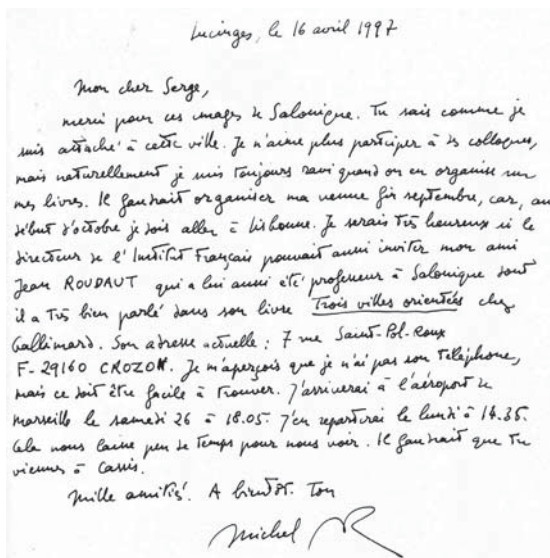 Lucinges, le 16 avril 1997
Mon cher Serge,
merci pour ces images de Salonique. Tu sais comme je
suis attaché à cette ville. Je n'aime plus participer à des colloques,
mais naturellement je suis toujours ravi quand on en organise sur
mes livres. Il faudrait organiser ma venue fin septembre, car, au
début d'octobre je dois aller à Lisbonne. Je serais très heureux si le
directeur de l'Institut Français pouvait aussi inviter mon ami
Jean ROUDAUT qui a lui aussi été professeur à Salonique dont
il a très bien parlé dans son livre Trois villes orientées chez
Gallimard. Son adresse actuelle : 7 rue Saint-Pol-Roux
F-29160 CROZON. Je m'aperçois que je n'ai pas son téléphone,
mais ce doit être facile à trouver. J'arriverai à l'aéroport de
Marseille le samedi 26 à 18.05. J'en repartirai le lundi à 14.35.
Cela nous laisse peu de temps pour nous voir. Il faudrait que tu
viennes à Cassis.
Mille amitiés. A bientôt. Ton
Michel